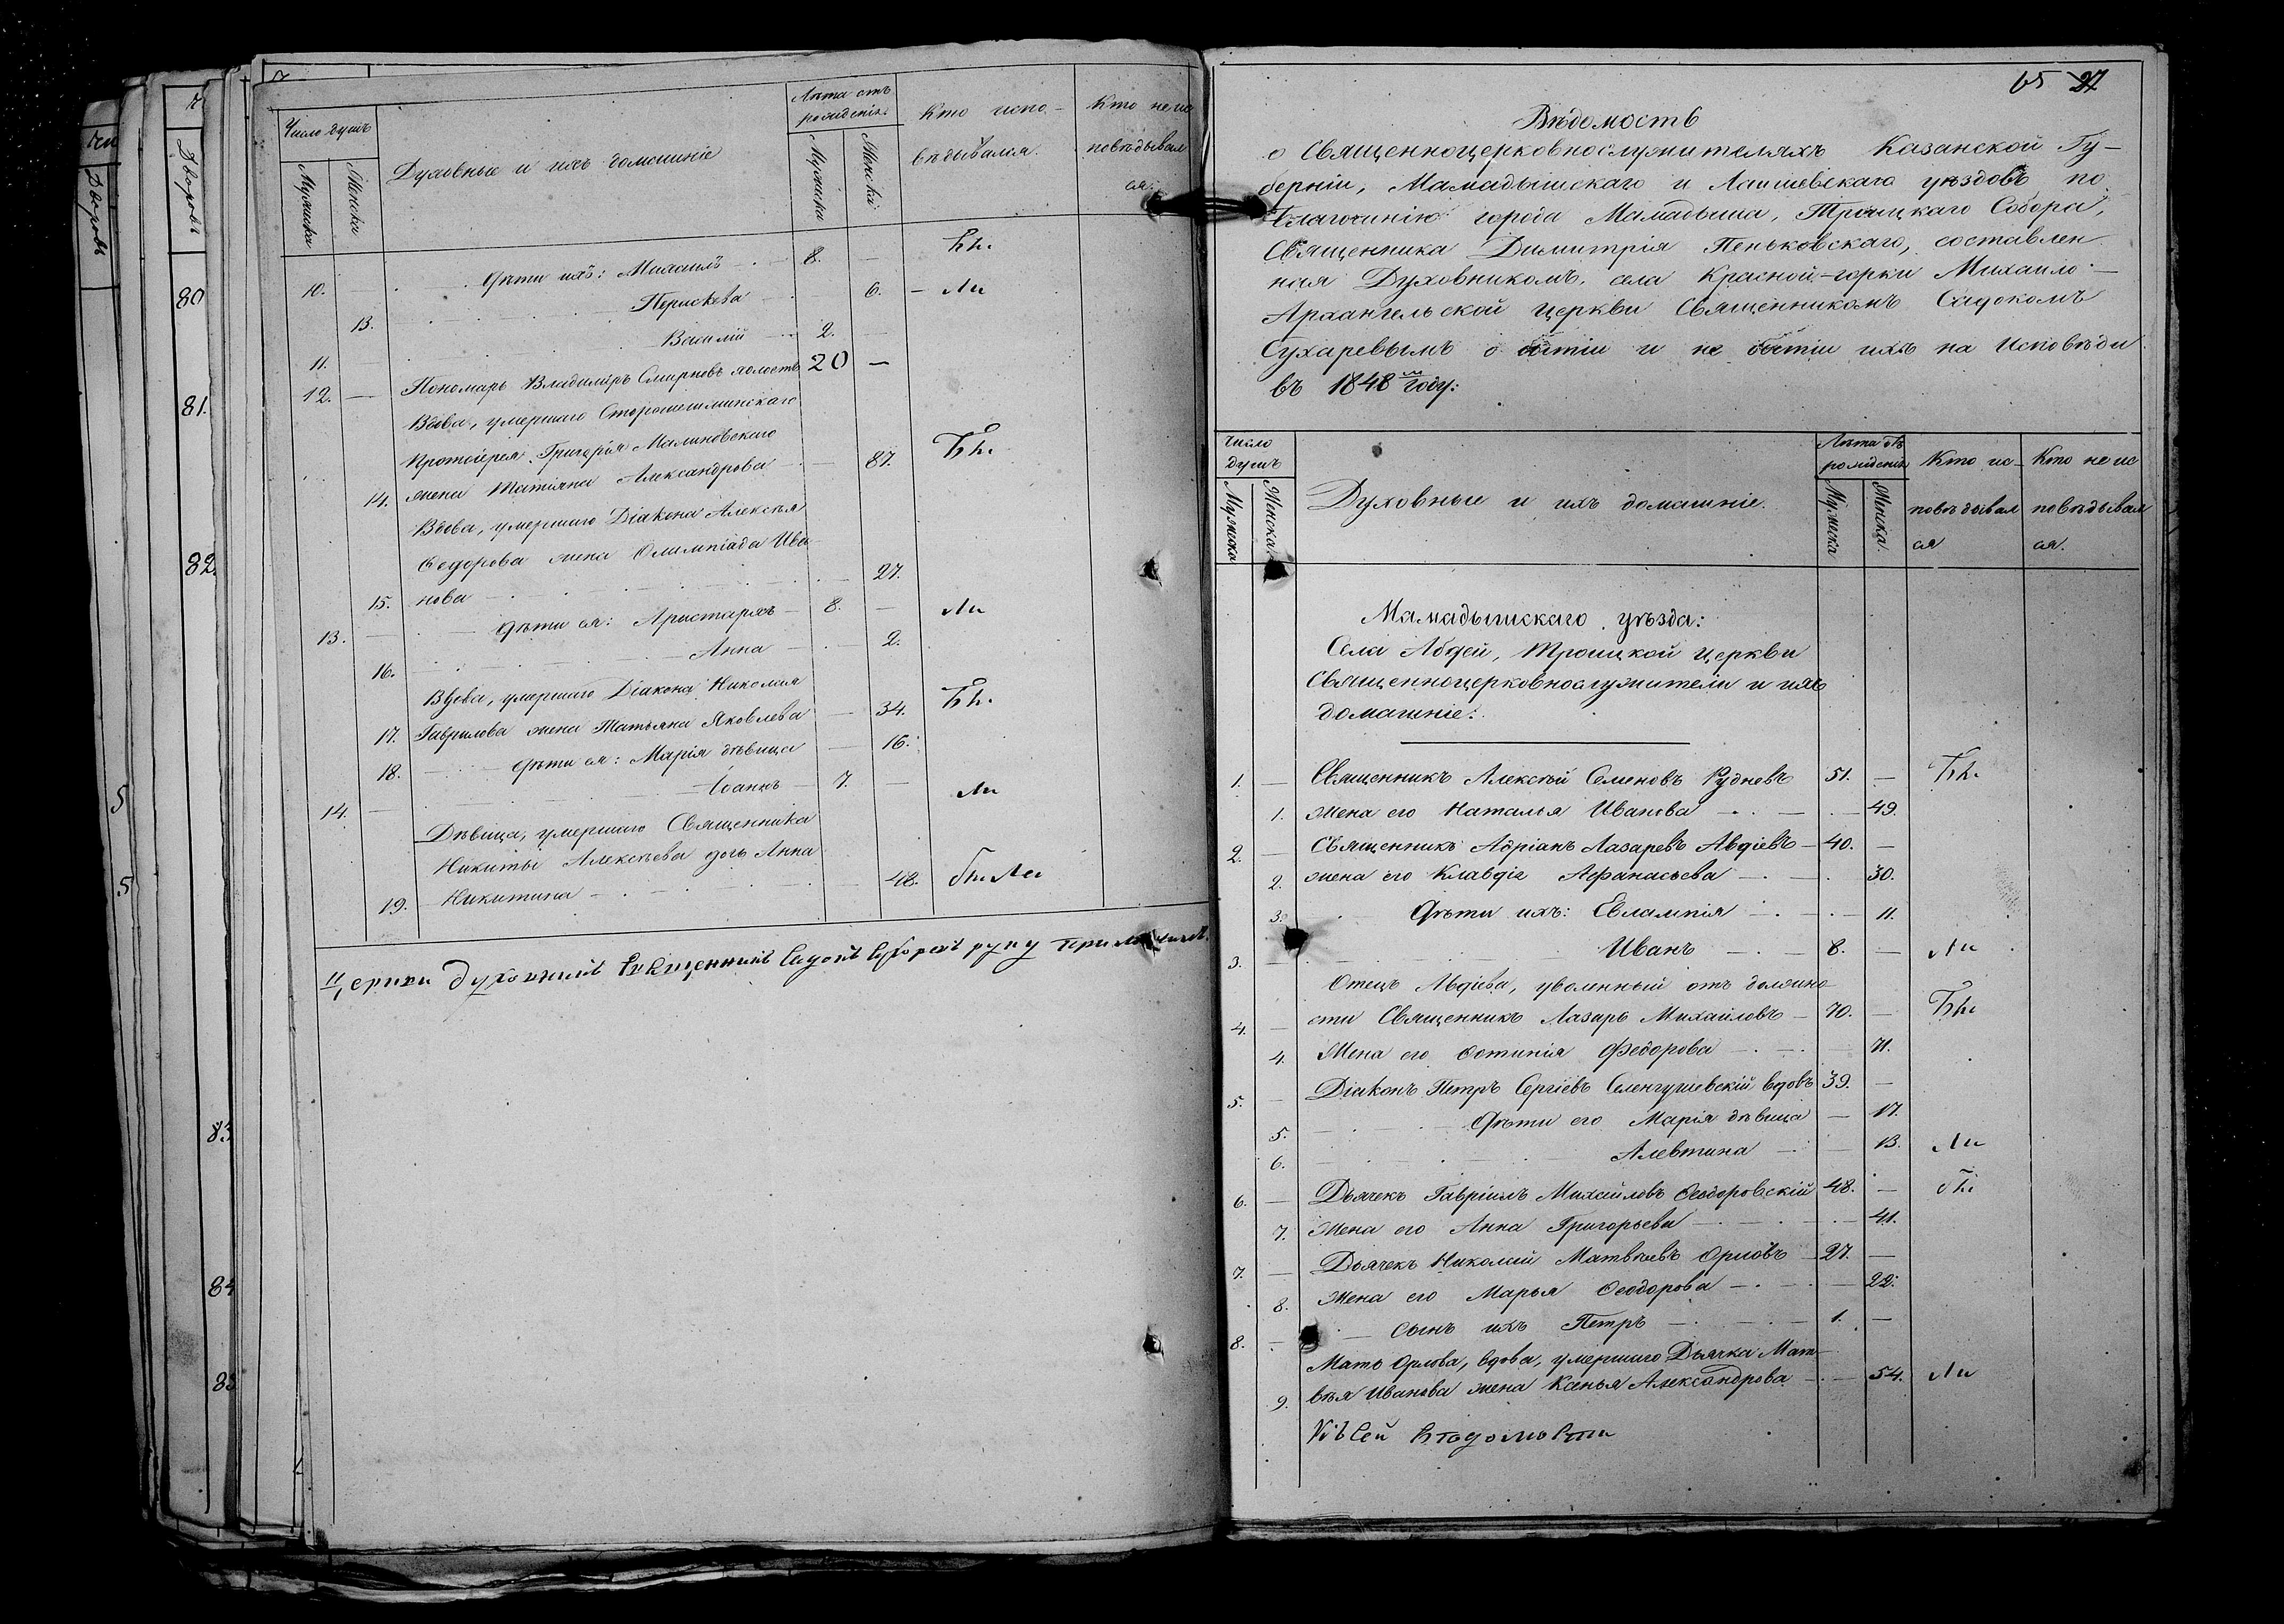 Число душъ
Мужска
Женска
Духовные и ихъ домашніе
Лѣта отъ
рожденія.
Мужска
Женска
Кто испо-
вѣдывался.
Кто не ис
повѣдывал
ся.
10. Дѣти ихъ: Михаилъ 8. —
13. Перискева 6. — Ли
11. — Василій 2. —
12. — Пономарь Владиміръ Смирновъ холостъ 20 —
Вдова, умершаго Старошешминскаго
Протоіерея Григорія Малиновскаго
14. жена Татіяна Александрова — 87.
Вдова, умершаго Діакона Алексѣя
Ѳедорова жена Олимпіада Ива
15. нова — 27.
13. — Дѣти ея: Аристархъ — 8. — Ли
16. Анна — 2.
Вдова, умершаго Діакона Николая
17. Гаврилова жена Татьяна Яковлева — 34.
18. — Дѣти ея: Марія дѣвица — 16.
14. — Іоаннъ — 7. — Ли
Дѣвица, умершаго Священника
Никиты Алексѣева дочь Анна
19. Никитина — 48.
Церкви духовникъ Священникъ Садокъ Сухаревъ руку приложилъ.
80
81.
82.
83
84
85
5
5
Дворовъ
Дворовъ
65 27
Вѣдомость
о Священноцерковнослужителяхъ Казанской Гу-
берніи, Мамадышскаго и Лаишевскаго уѣздовъ по
Благочинію города Мамадыша, Троицкаго Собора,
Священника Димитрія Пеньковскаго, составлен
ная Духовникомъ, села Красной-горки Михаило-
Архангельской церкви Священникомъ Садокомъ
Сухаревымъ о бытіи и не бытіи ихъ на Исповѣди
въ 1848 м году:
Число
душъ
Мужска
Женска.
Духовные и ихъ домашніе.
Лѣта отъ
рожденія
Мужска
Женска.
Кто ис-
повѣдывал
ся
Кто не ис
повѣдывал
ся.
Мамадышскаго уѣзда:
Села Абдей, Троицкой церкви
Священноцерковнослужители и ихъ
домашніе:
1. — Священникъ Алексѣй Семеновъ Рудневъ 51. —
1. жена его Наталья Иванова — 49.
2. — Священникъ Адріанъ Лазаревъ Авдіевъ — 40. —
2. жена его Клавдія Афанасьева — 30.
3. Дѣти ихъ: Евлампія — 11.
3. — Иванъ — 8. — Ли
Отецъ Авдіева, уволенный отъ должно
4. — сти Священникъ Лазарь Михайловъ — 70. —
4. Жена его Фотинія Федорова — 71.
5. — Діаконъ Петръ Сергіевъ Селенгушевскій вдовъ 39. —
5. — Дѣти его Марія дѣвица — 17.
6. — Алевтина — 13. Ли
6. — Дьячекъ Гавріилъ Михайловъ Ѳеодоровскій 48. —
7. Жена его Анна Григорьева — 41.
7. — Дьячекъ Николай Матвѣевъ Орловъ — 27. —
8. Жена его Марья Ѳеодорова — 22.
8. — Сынъ ихъ Петръ — 1. —
Мать Орлова, вдова, умершаго Дьячка Мат-
9. вѣя Иванова жена Ксенья Александрова — 54. Ли
Къ Сей Вѣдомости